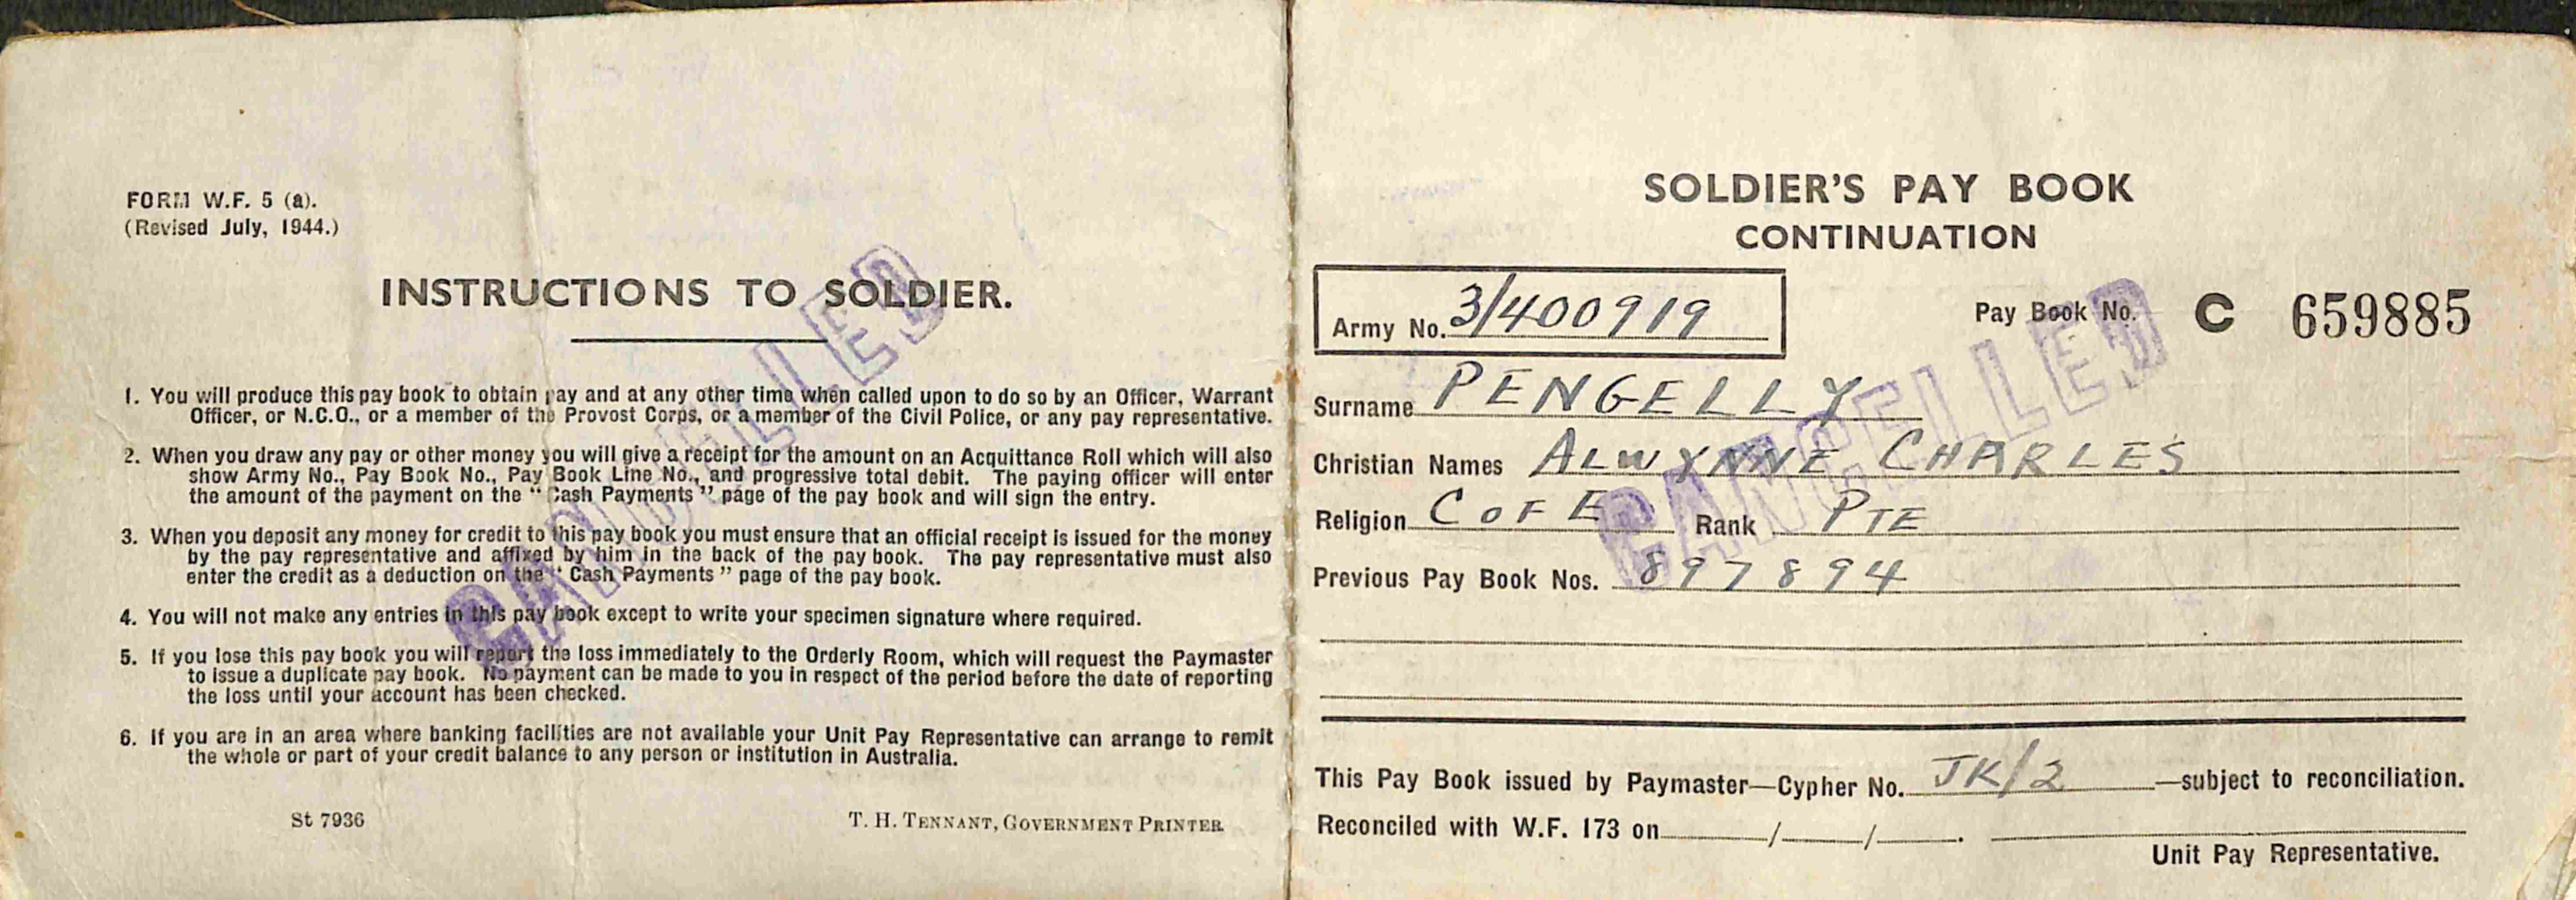 FORM W.F. 5 (a).
(Revised July, 1944.)
INSTRUCTIONS TO SOLDIER.
1. You will produce this pay book to obtain pay and at any other time when called upon to do so by an Officer, Warrant
Officer, or N.C.O., or a member of the Provost Corps, or a member of the Civil Police, or any pay representative.
2. When you draw any pay or other money you will give a receipt for the amount on an Acquittance Roll which will also
show Army No., Pay Book No., Pay Book Line No., and progressive total debit. The paying officer will enter
the amount of the payment on the “Cash Payments” page of the pay book and will sign the entry.
3. When you deposit any money for credit to this pay book you must ensure that an official receipt is issued for the money
by the pay representative and affixed by him in the back of the pay book. The pay representative must also
enter the credit as a deduction on the “Cash Payments” page of the pay book.
4. You will not make any entries in this pay book except to write your specimen signature where required.
5. If you lose this pay book you will report the loss immediately to the Orderly Room, which will request the Paymaster
to issue a duplicate pay book. No payment can be made to you in respect of the period before the date of reporting
the loss until your account has been checked.
6. If you are in an area where banking facilities are not available your Unit Pay Representative can arrange to remit
the whole or part of your credit balance to any person or institution in Australia.
St 7936 T. H. TENNANT, GOVERNMENT PRINTER.
CANCELLED
SOLDIER'S PAY BOOK
CONTINUATION
Army No. 3/400919 Pay Book No. C 659885
Surname PENGELLY
Christian Names ALWYNNE CHARLES
Religion C OF E Rank PTE
Previous Pay Book Nos. 897894
This Pay Book issued by Paymaster—Cypher No. JK/2 —subject to reconciliation.
Reconciled with W.F. 173 on / / .
Unit Pay Representative.
CANCELLED